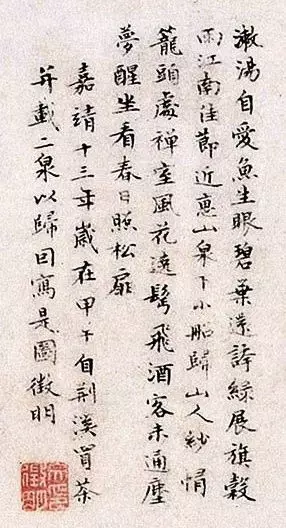 嫩湯自愛魚生眼碧葉還誇綠展旗穀
雨江南佳節近惠山泉下小船歸山人紗帽
籠頭處禪室風花遶鬢飛酒客未通塵
夢醒坐看春日照松扉
嘉靖十三年歲在甲午自荊溪買茶
并載二泉以歸因寫是圖徵明